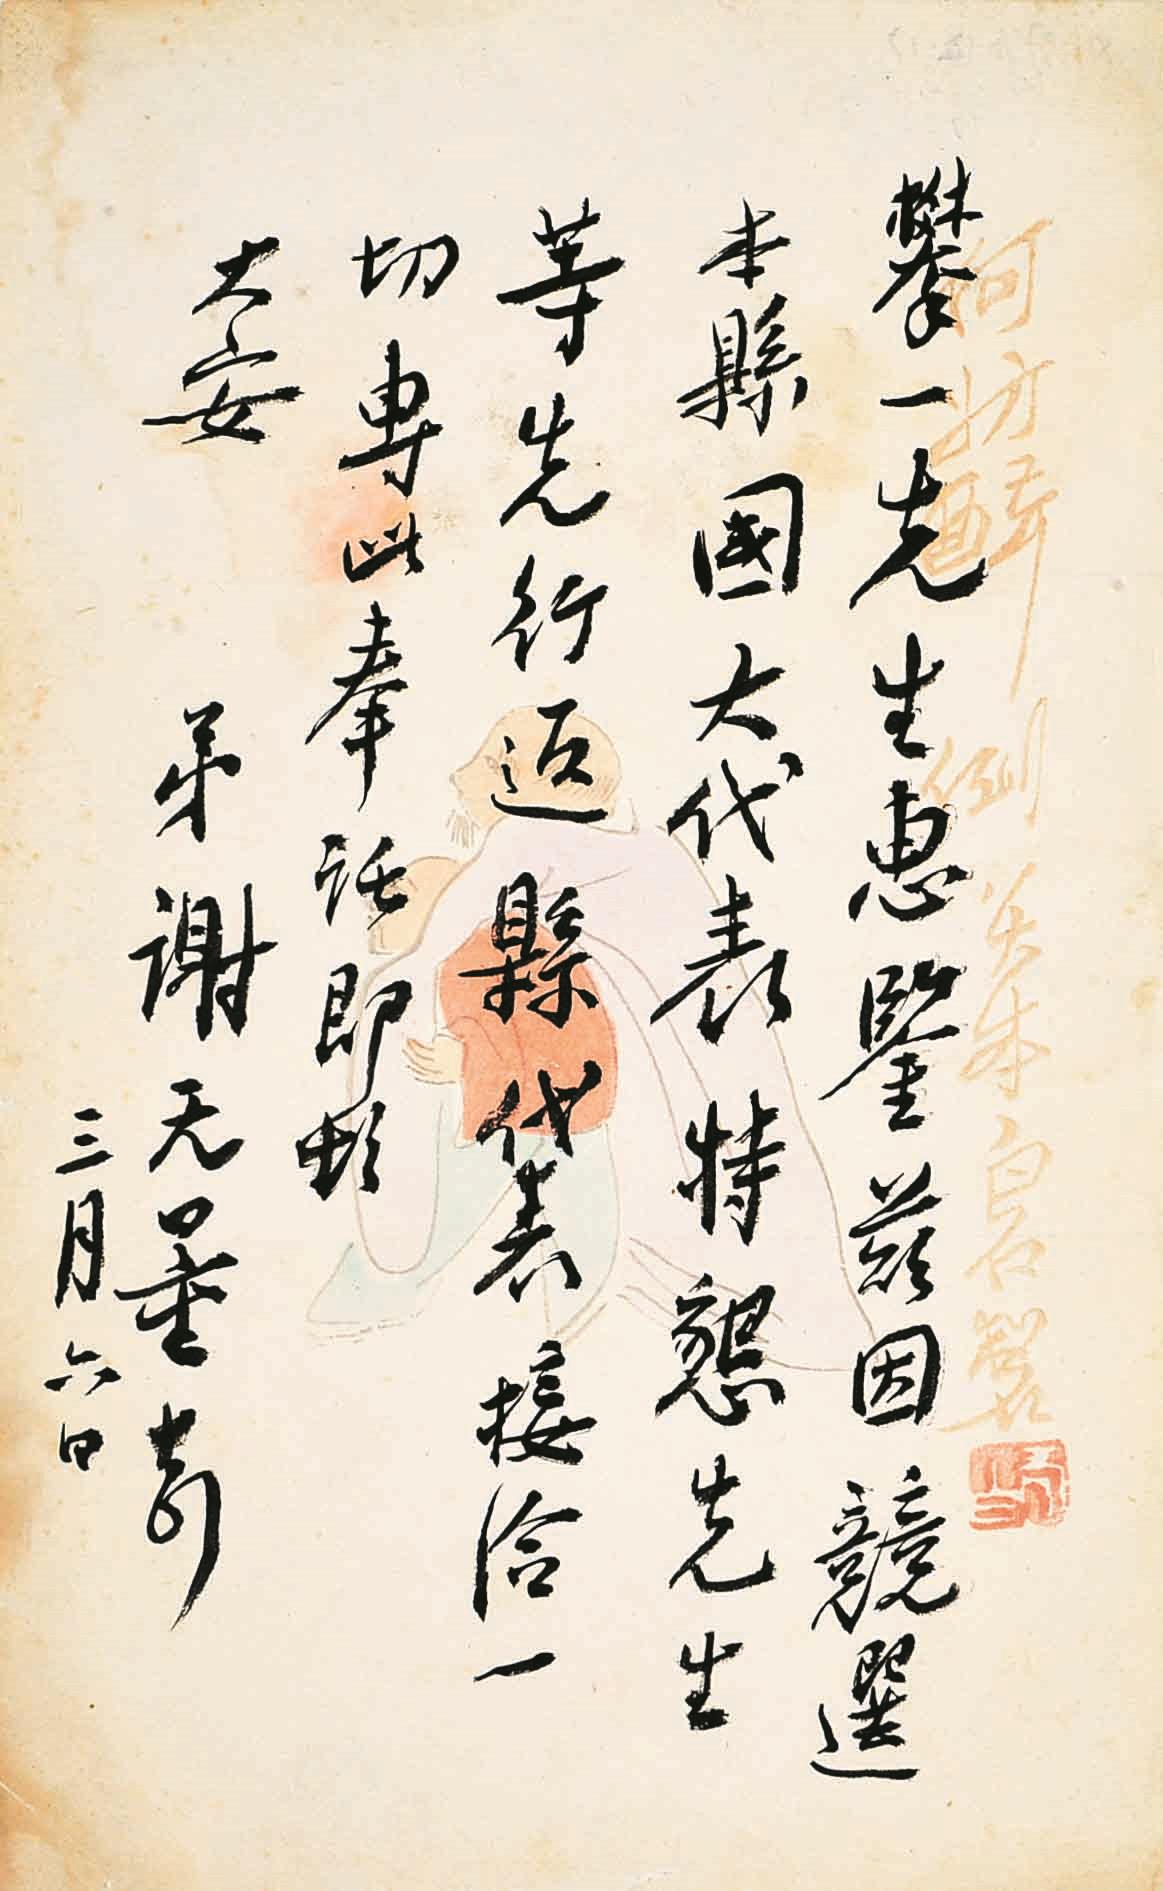 何妨醉倒白石製
攀一先生惠鑒茲因競選
本縣國大代表特懇先生
等先行返縣代表接洽一
切專此奉託即頌
大安
弟謝无量
三月六日